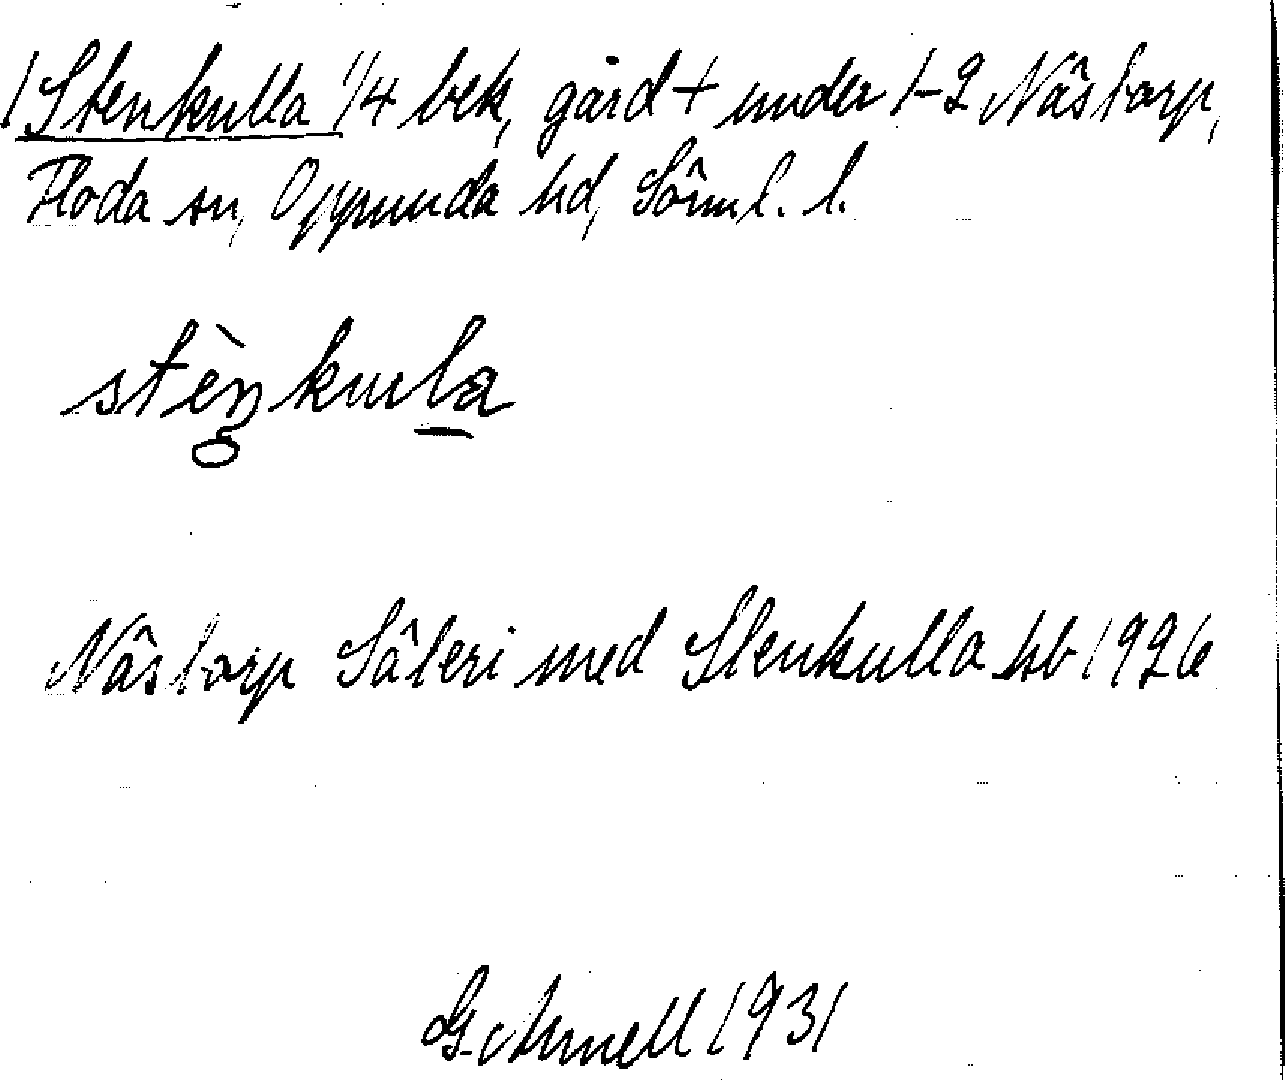 1 Stenkulla 1/4 bek, gård + under 1-2 Nästorp,
Floda sn, Oppunda hd, Sörml. l.
stèŋkula
Nästorp Säteri med Stenkulla sb 1926
1931